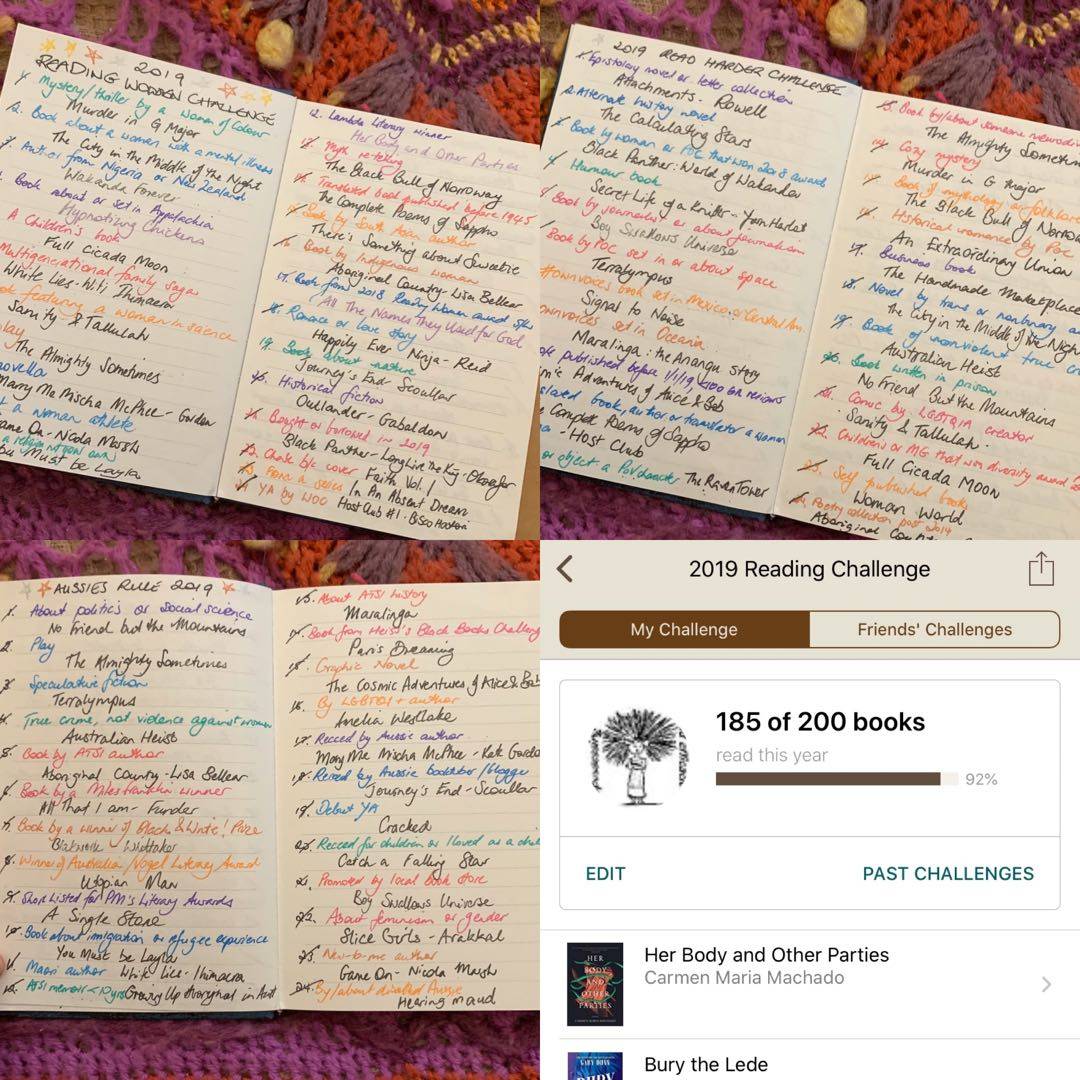 2019
READING WOMEN CHALLENGE
1. Mystery/thriller by a woman of colour
Murder in G Major
2. Book about a woman with a mental illness
The City in the Middle of the Night
Author from Nigeria or New Zealand
Wakanda Forever
Book about or set in Appalachia
Hypnotizing Chickens
A Children's book
Full Cicada Moon
Multigenerational family saga
White Lies - Witi Ihimaera
featuring a woman in science
Sanity & Tallulah
play
The Almighty Sometimes
novella
Marry Me Mischa McPhee - Gordon
a woman athlete
Game On - Nicola Marsh
You Must be Layla
12. Lambda Literary winner
Her Body and Other Parties
Myth re-telling
The Black Bull of Norroway
Translated book published before 1945
The Complete Poems of Sappho
Book by South Asian author
There's Something about Sweetie
Book by Indigenous woman
Aboriginal Country - Lisa Bellear
17. Book from 2018 Reading Women award
All The Names They Used for God
18. Romance or love story
Happily Ever Ninja - Reid
19. Book about nature
Journey's End - Scoullar
Historical fiction
Outlander - Gabaldon
Bought or borrowed in 2019
Black Panther - Long Live the King - Okorafor
Chose b/c cover Faith Vol. 1
From a series In An Absent Dream
YA by WOC Host Club #1 - Bisco Hatori
2019 READ HARDER CHALLENGE
1. Epistolary novel or letter collection
Attachments - Rowell
2. Alternate history novel
The Calculating Stars
Book by woman or POC that won 2018 award
Black Panther: World of Wakanda
4. Humour book
Secret Life of a Knitter - Yarn Harlot
Book by journalist or about journalism
Boy Swallows Universe
Book by POC set in or about space
Terralympus
#ownvoices book set in Mexico or Central Am.
Signal to Noise
ownvoices set in Oceania
Maralinga: the Anangu Story
published before 1/1/19 <100 GR reviews
Adventures of Alice & Bob
book, author or translator a woman
Complete Poems of Sappho
- Host Club
or object a POV character The Raven Tower
Book by/about someone
The Almighty Sometimes
14. Cozy mystery
Murder in G Major
Book of mythology or folklore
The Black Bull of Norroway
16. Historical romance by POC
An Extraordinary Union
17. Business book
The Handmade Marketplace
18. Novel by trans or nonbinary
The City in the Middle of the Night
19. Book of nonviolent true
Australian Heist
20. Book written in prison
No Friend But the Mountains
Comic by LGBTQIA creator
Sanity & Tallulah
Children's or MG that won diversity award
Full Cicada Moon
23. Self published book
Woman World
Poetry collection post 2014
Aboriginal Country
AUSSIES RULE 2019
1. About politics or social science
No Friend but the Mountains
2. Play
The Almighty Sometimes
3. Speculative fiction
Terralympus
4. True crime, not violence against women
Australian Heist
5. Book by ATSI author
Aboriginal Country - Lisa Bellear
6. Book by a Miles Franklin winner
All That I am - Funder
7. Book by a winner of Black & Write! Prize
Blakwork Whittaker
8. Winner of Australian/Vogel Literary Award
Utopian Man
9. Short Listed for PM's Literary Awards
A Single Stone
10. Book about immigration or refugee experience
You Must be Layla
11. Maori author White Lies - Ihimaera
12. ATSI memoir <10 yrs Growing Up Aboriginal in Aust
13. About ATSI history
Maralinga
14. Book from Heiss's Black Books Challenge
Paris Dreaming
15. Graphic Novel
The Cosmic Adventures of Alice & Bob
16. By LGBTQI+ author
Amelia Westlake
17. Recced by Aussie author
Marry Me Mischa McPhee - Kate Gordon
18. Recced by Aussie booktuber/blogger
Journey's End - Scoullar
19. Debut YA
Cracked
20. Recced for children or I loved as a child
Catch a Falling Star
21. Promoted by local book store
Boy Swallows Universe
22. About feminism or gender
Slice Girls - Arakkal
23. New-to-me author
Game On - Nicola Marsh
24. By/about disabled Aussie
Hearing Maud
2019 Reading Challenge
My Challenge
Friends' Challenges
185 of 200 books
read this year
92%
EDIT
PAST CHALLENGES
HER BODY AND OTHER PARTIES
Her Body and Other Parties
Carmen Maria Machado
Bury the Lede